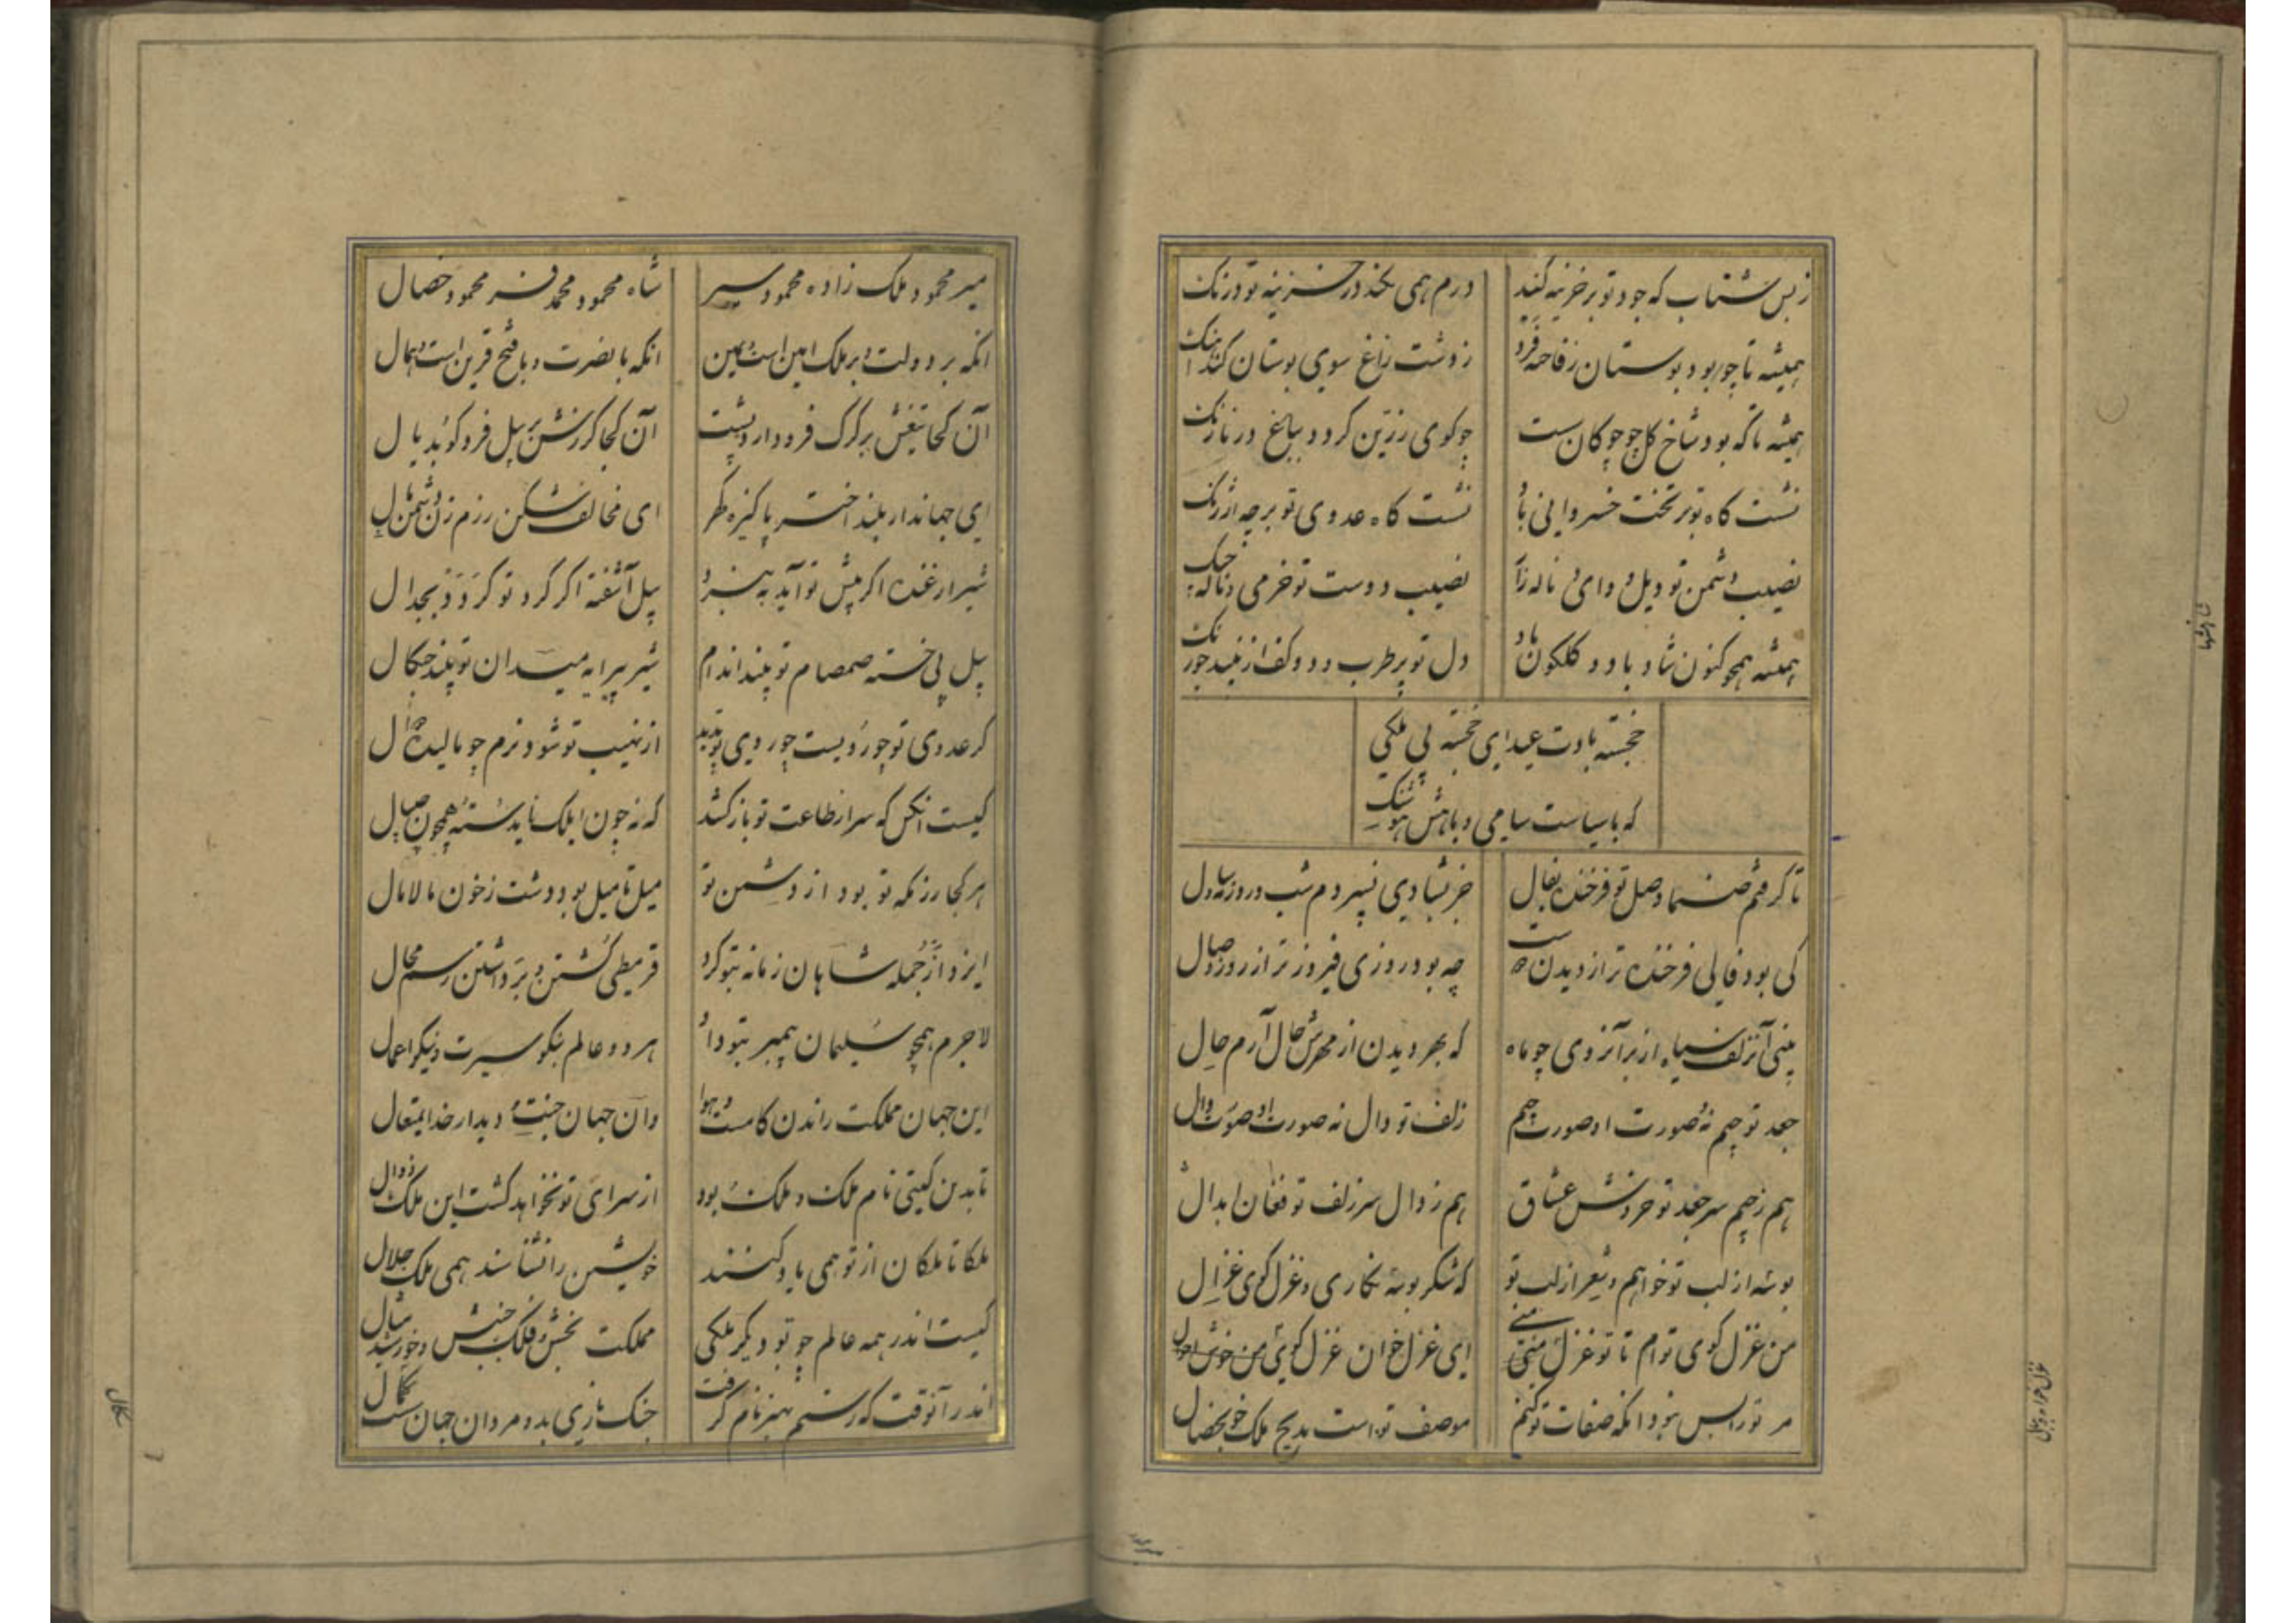 ز بس شتاب که جود تو بر خزینه کند
درم همی نکند در خزینه تو درنک
همیشه تا چو بود بوستان ز فاخته فرد
ز دشت زاغ سوی بوستان کند اهنک
همیشه تا که بود شاخ کل چو چوکان ست
چو کوی زرین کردد بباغ در نارنک
نشست کاه تو بر تخت خسروانی باد
نشست کاه عدوی تو بر چه ارژنک
نصیب دشمن تو ویل و وای و ناله زار
نصیب دوست تو خرمی و ناله چنک
همیشه همچو کنون شاد باد و کلکون باد
دل تو بر طرب و دو کف از نبید چو زنک
خجسته بادت عید ای خجسته پی ملکی
که با سیاست سامی و با هش هوشنک
تا کرفتم صنما وصل تو فرخنده بفال
جز بشادی نسپردم شب و روز و مه و سال
کی بود فالی فرخنده تر از دیدن دوست
چه بود روزی فیروزتر از روز وصال
بینی آن زلف سیاه از بر آن روی چو ماه
که بهر دیدن از مهرش حال آرم حال
جعد تو جیم نه و صورت او صورت جیم
زلف تو دال نه و صورت او صورت دال
هم ز جیم سر جعد تو خروش عشاق
هم ز دال سر زلف تو فغان ابدال
بوسه از لب تو خواهم و شعر از لب تو
که شکر بوسه نکاری و غزل کوی غزال
من غزل کوی توام تا تو غزل منی
ای غزل خوان غزل کوی من خوش احوال
مر تو را بس نبود انکه صفات تو کنم
موصف تو است بدیح ملک خوب خصال
میر محمود ملک زاده محمود سیر
شاه محمود محمد فر محمود خصال
انکه بر دولت و بر ملک امین است و یمین
انکه با نصرت و با فتح قرین است و همال
آن کجا تیغش بر کرک فرو دارد پشت
آن کجا کرزش بر پیل فرو کوبد یال
ای جهاندار بلند اختر پاکیزه کهر
ای مخالف شکن رزم زن دشمن مال
شیر ارغنده اکر پیش تو آید به نبرد
پیل آشفته اکر کرد تو کردد بجدال
پیل پی خسته صمصام تو بیند اندام
شیر پیرایه میدان تو بیند چنکال
کر عدوی تو چو رویست چو روی تو بدید
از نهیب تو شود نرم چو مالیده دوال
کیست انکس که سر از طاعت تو باز کشد
که نه چون ایلک ناید سته همچون چیپال
هر کجا رزمکه تو بود از دشمن تو
میل تا میل بود دشت ز خون مالامال
ایزد از جمله شاهان زمانه بتو کرد
قرمطی کشتن و برداشتن رسم محال
لاجرم همچو سلیمان پیمبر بتو داد
هر دو عالم بنکو سیرت و نیکو اعمال
این جهان مملکت راندن کامست و هوا
وان جهان جنت و دیدار خدای متعال
تا بدین کیتی نام ملک و ملک بود
از سرای تو نخواهد کشت این ملک زوال
ملکا تا ملکان از تو همی یاد کنند
خویشتن را نشناسند همی ملک جلال
کیست اندر همه عالم چو تو دیکر ملکی
مملکت بخش و فلک جنبش و خورشید مثال
اندر آنوقت که رستم بهنر نام کرفت
جنک بازی بد و مردان جهان سست سکال
سکال